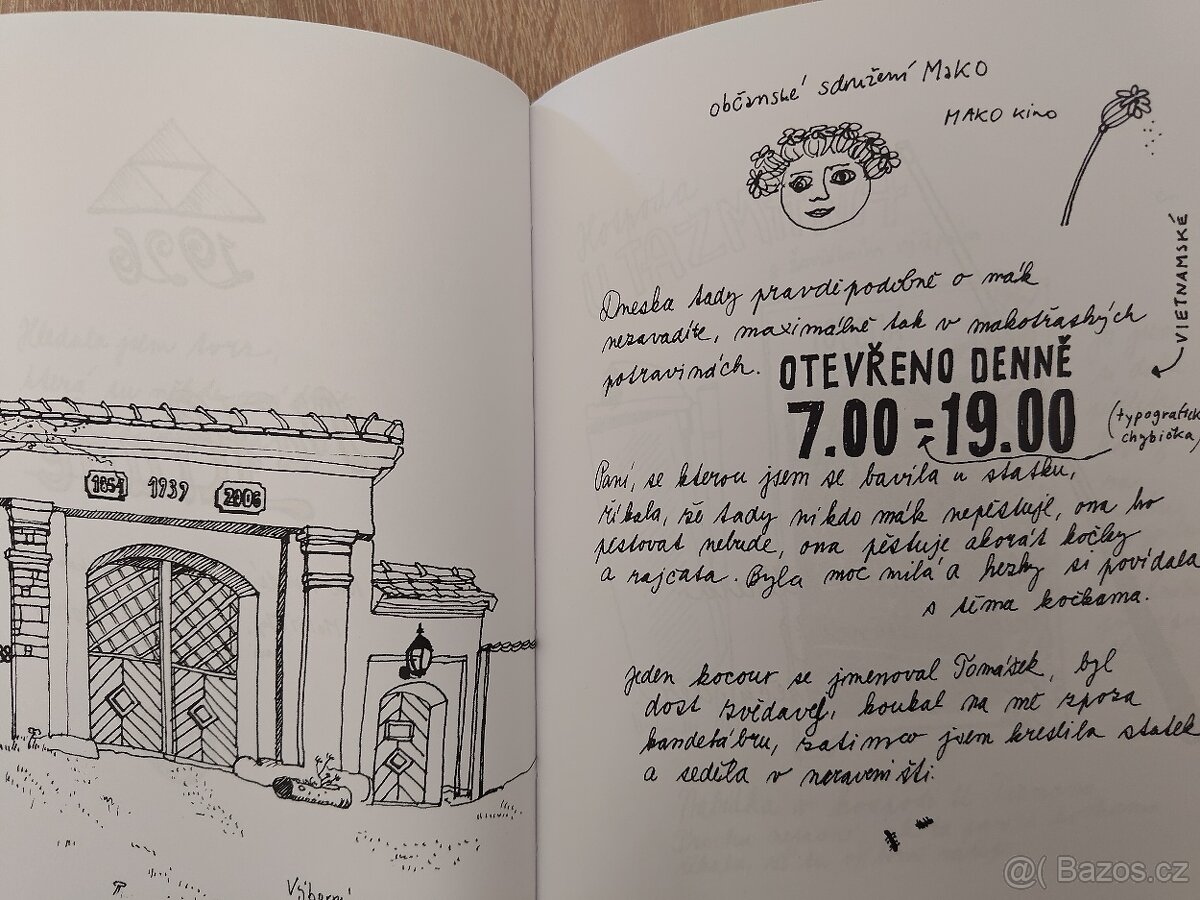 1854 1939 2006
Výborní
občanské sdružení Mako
MAKO kino
Dneska tady pravděpodobně o mák
nezavadíte, maximálně tak v makotřaských
potravinách.
OTEVŘENO DENNĚ
7.00 - 19.00
VIETNAMSKÉ
(typografick
chybička)
Paní, se kterou jsem se bavila u statku,
říkala, že tady nikdo mák nepěstuje, ona ho
pěstovat nebude, ona pěstuje akorát kočky
a rajčata. Byla moc milá a hezky si povídala
s těma kočkama.
Jeden kocour se jmenoval Tomášek, byl
dost zvědavej, koukal na mě zpoza
kandelábru, zatimco jsem kreslila statek
a seděla v mraveništi.
1926
@( Bazos.cz